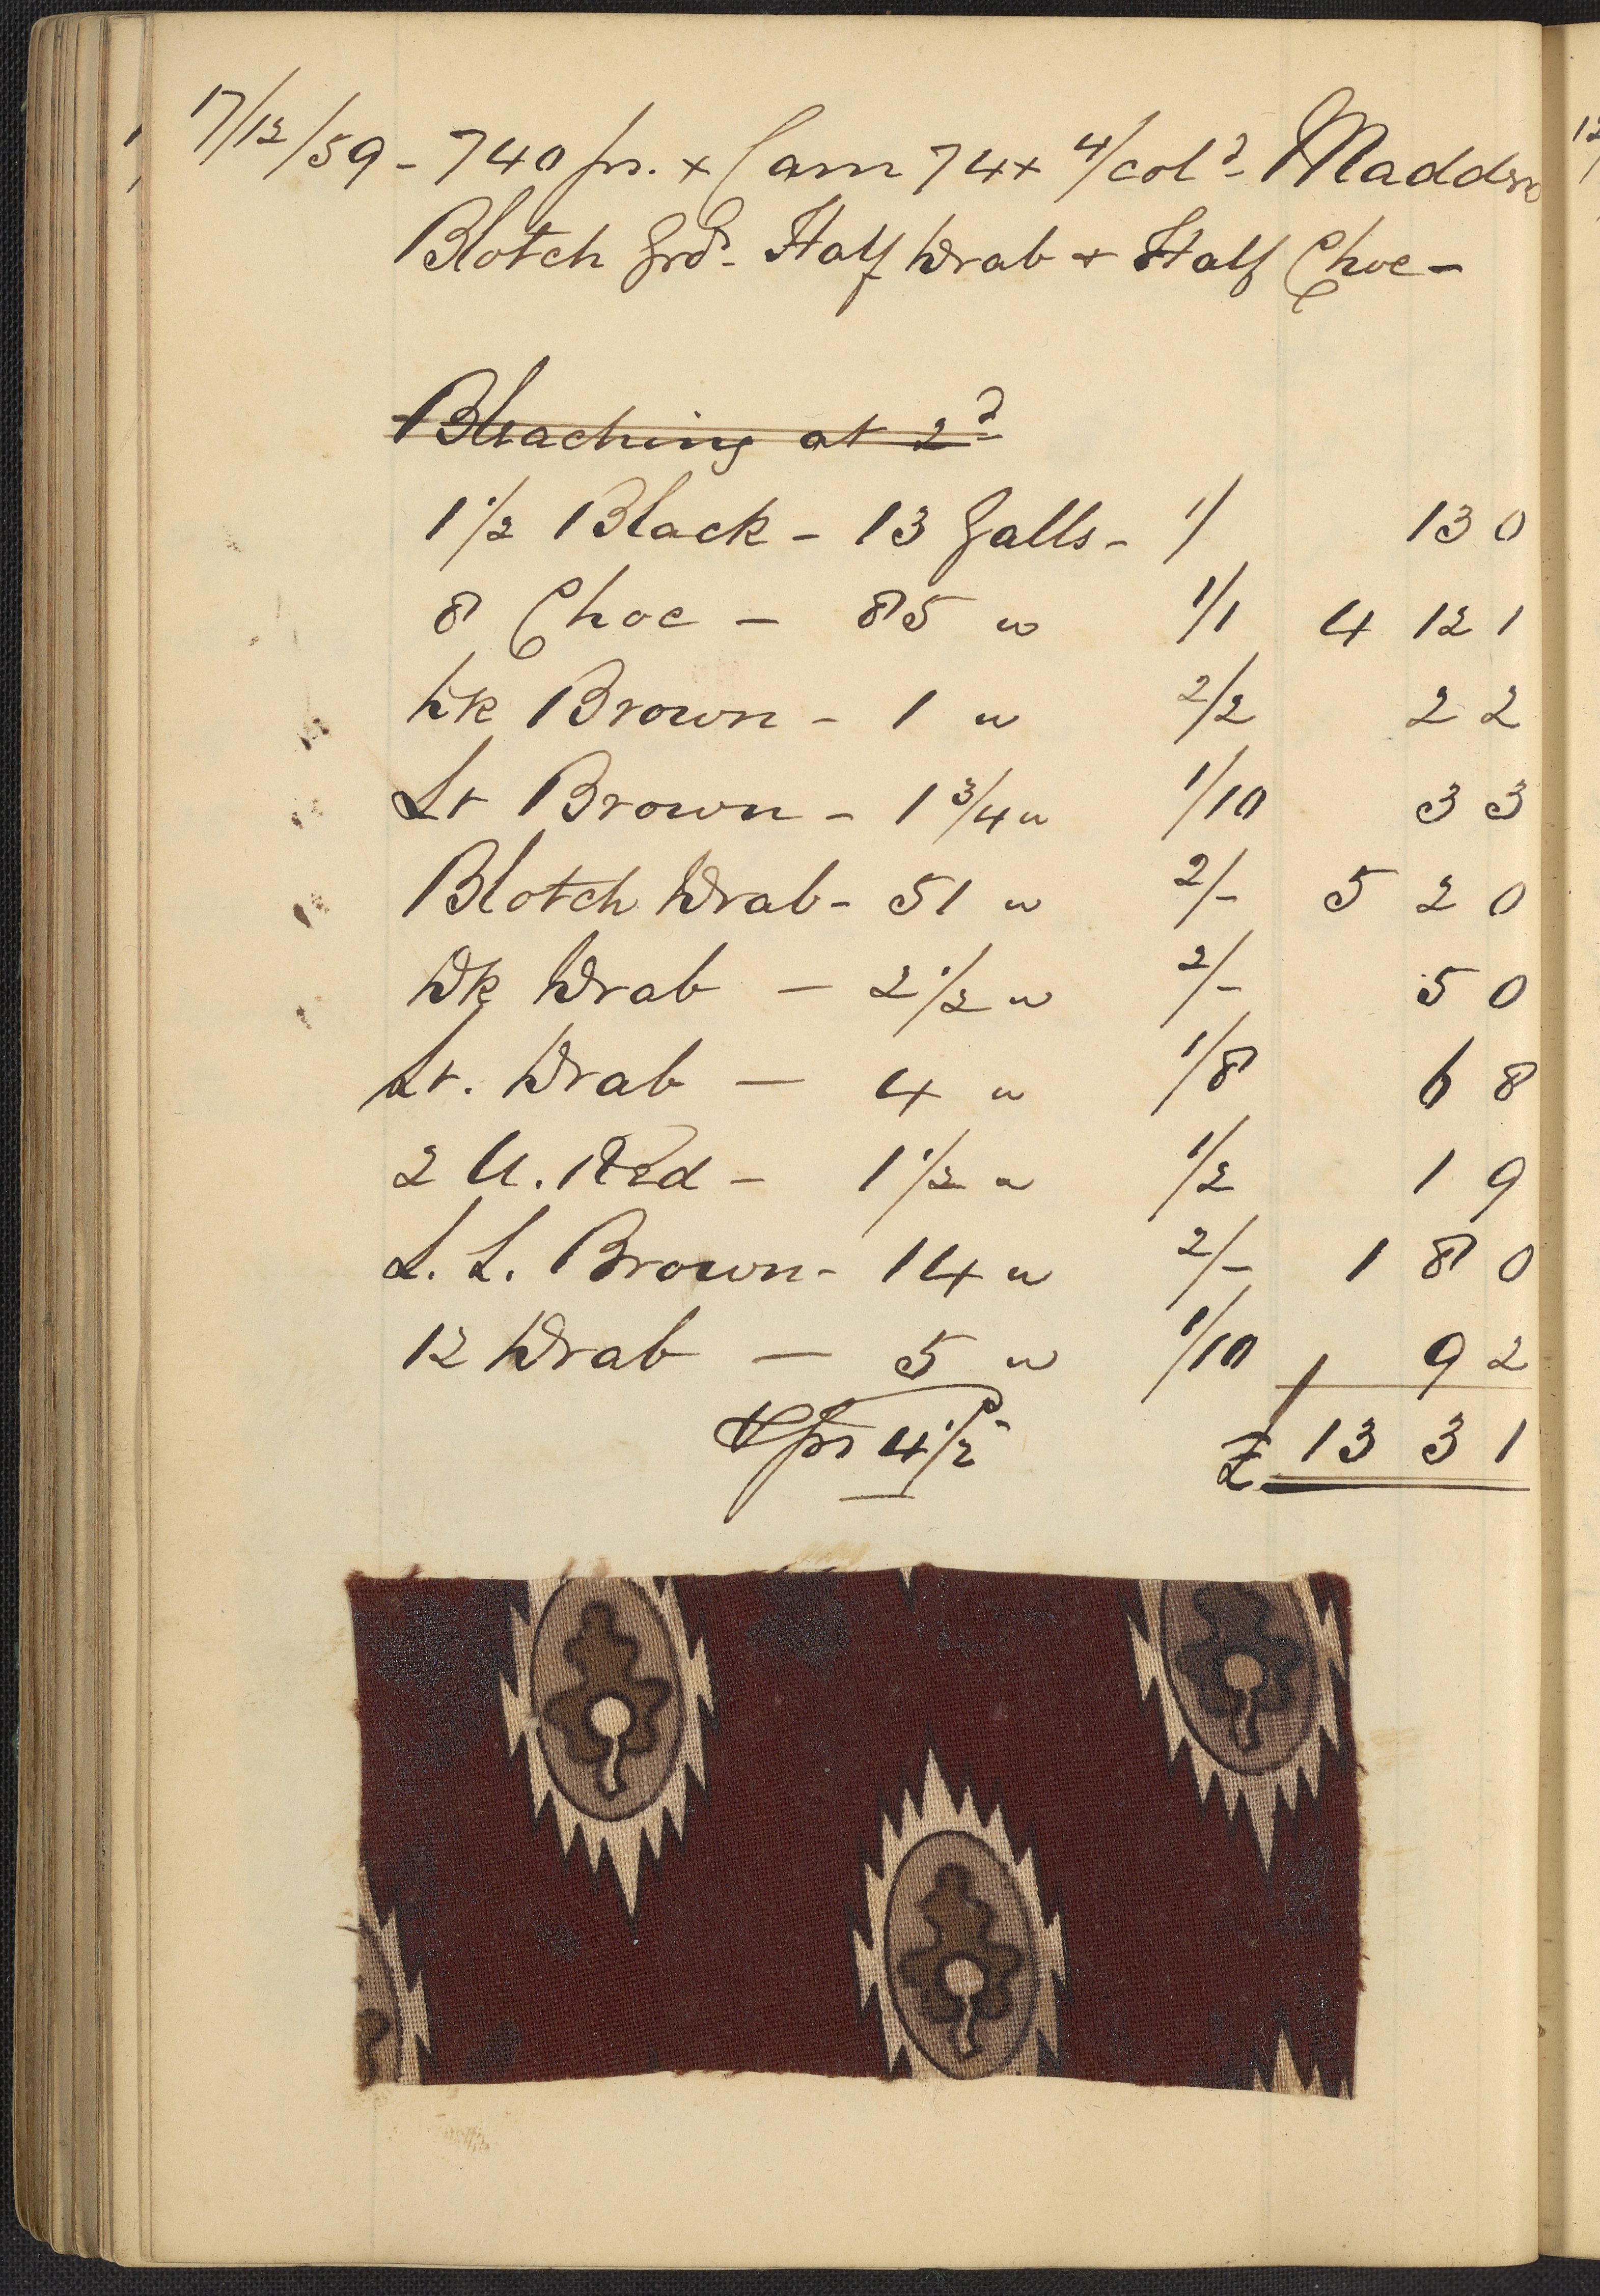 17/12/59 - 740 ps. x Cam 74x 4/col^d - Madder
Blotch Grd. Half Drab + Half Choc -
Bleaching at 2^d
1 1/2 Black - 13 Galls - 1/ 13 0
8 Choc - 85 " 1/1 4 12 1
Dk Brown - 1 " 2/2 2 2
Lt Brown - 1 3/4 " 1/10 3 3
Blotch Drab - 51 " 2/- 5 2 0
Dk Drab - 2 1/2 " 2/- 5 0
Lt. Drab - 4 " 1/8 6 8
2 U. Red - 1 1/2 " 1/2 1 9
L. L. Brown - 14 " 2/- 1 8 0
12 Drab - 5 " 1/10 9 2
ps 4 1/2 £ 13 3 1